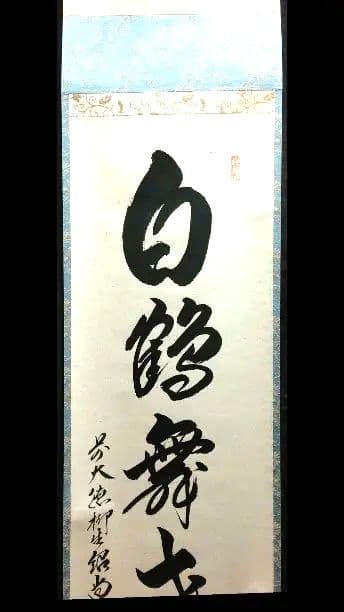 白鶴舞
前大徳柳生紹尚